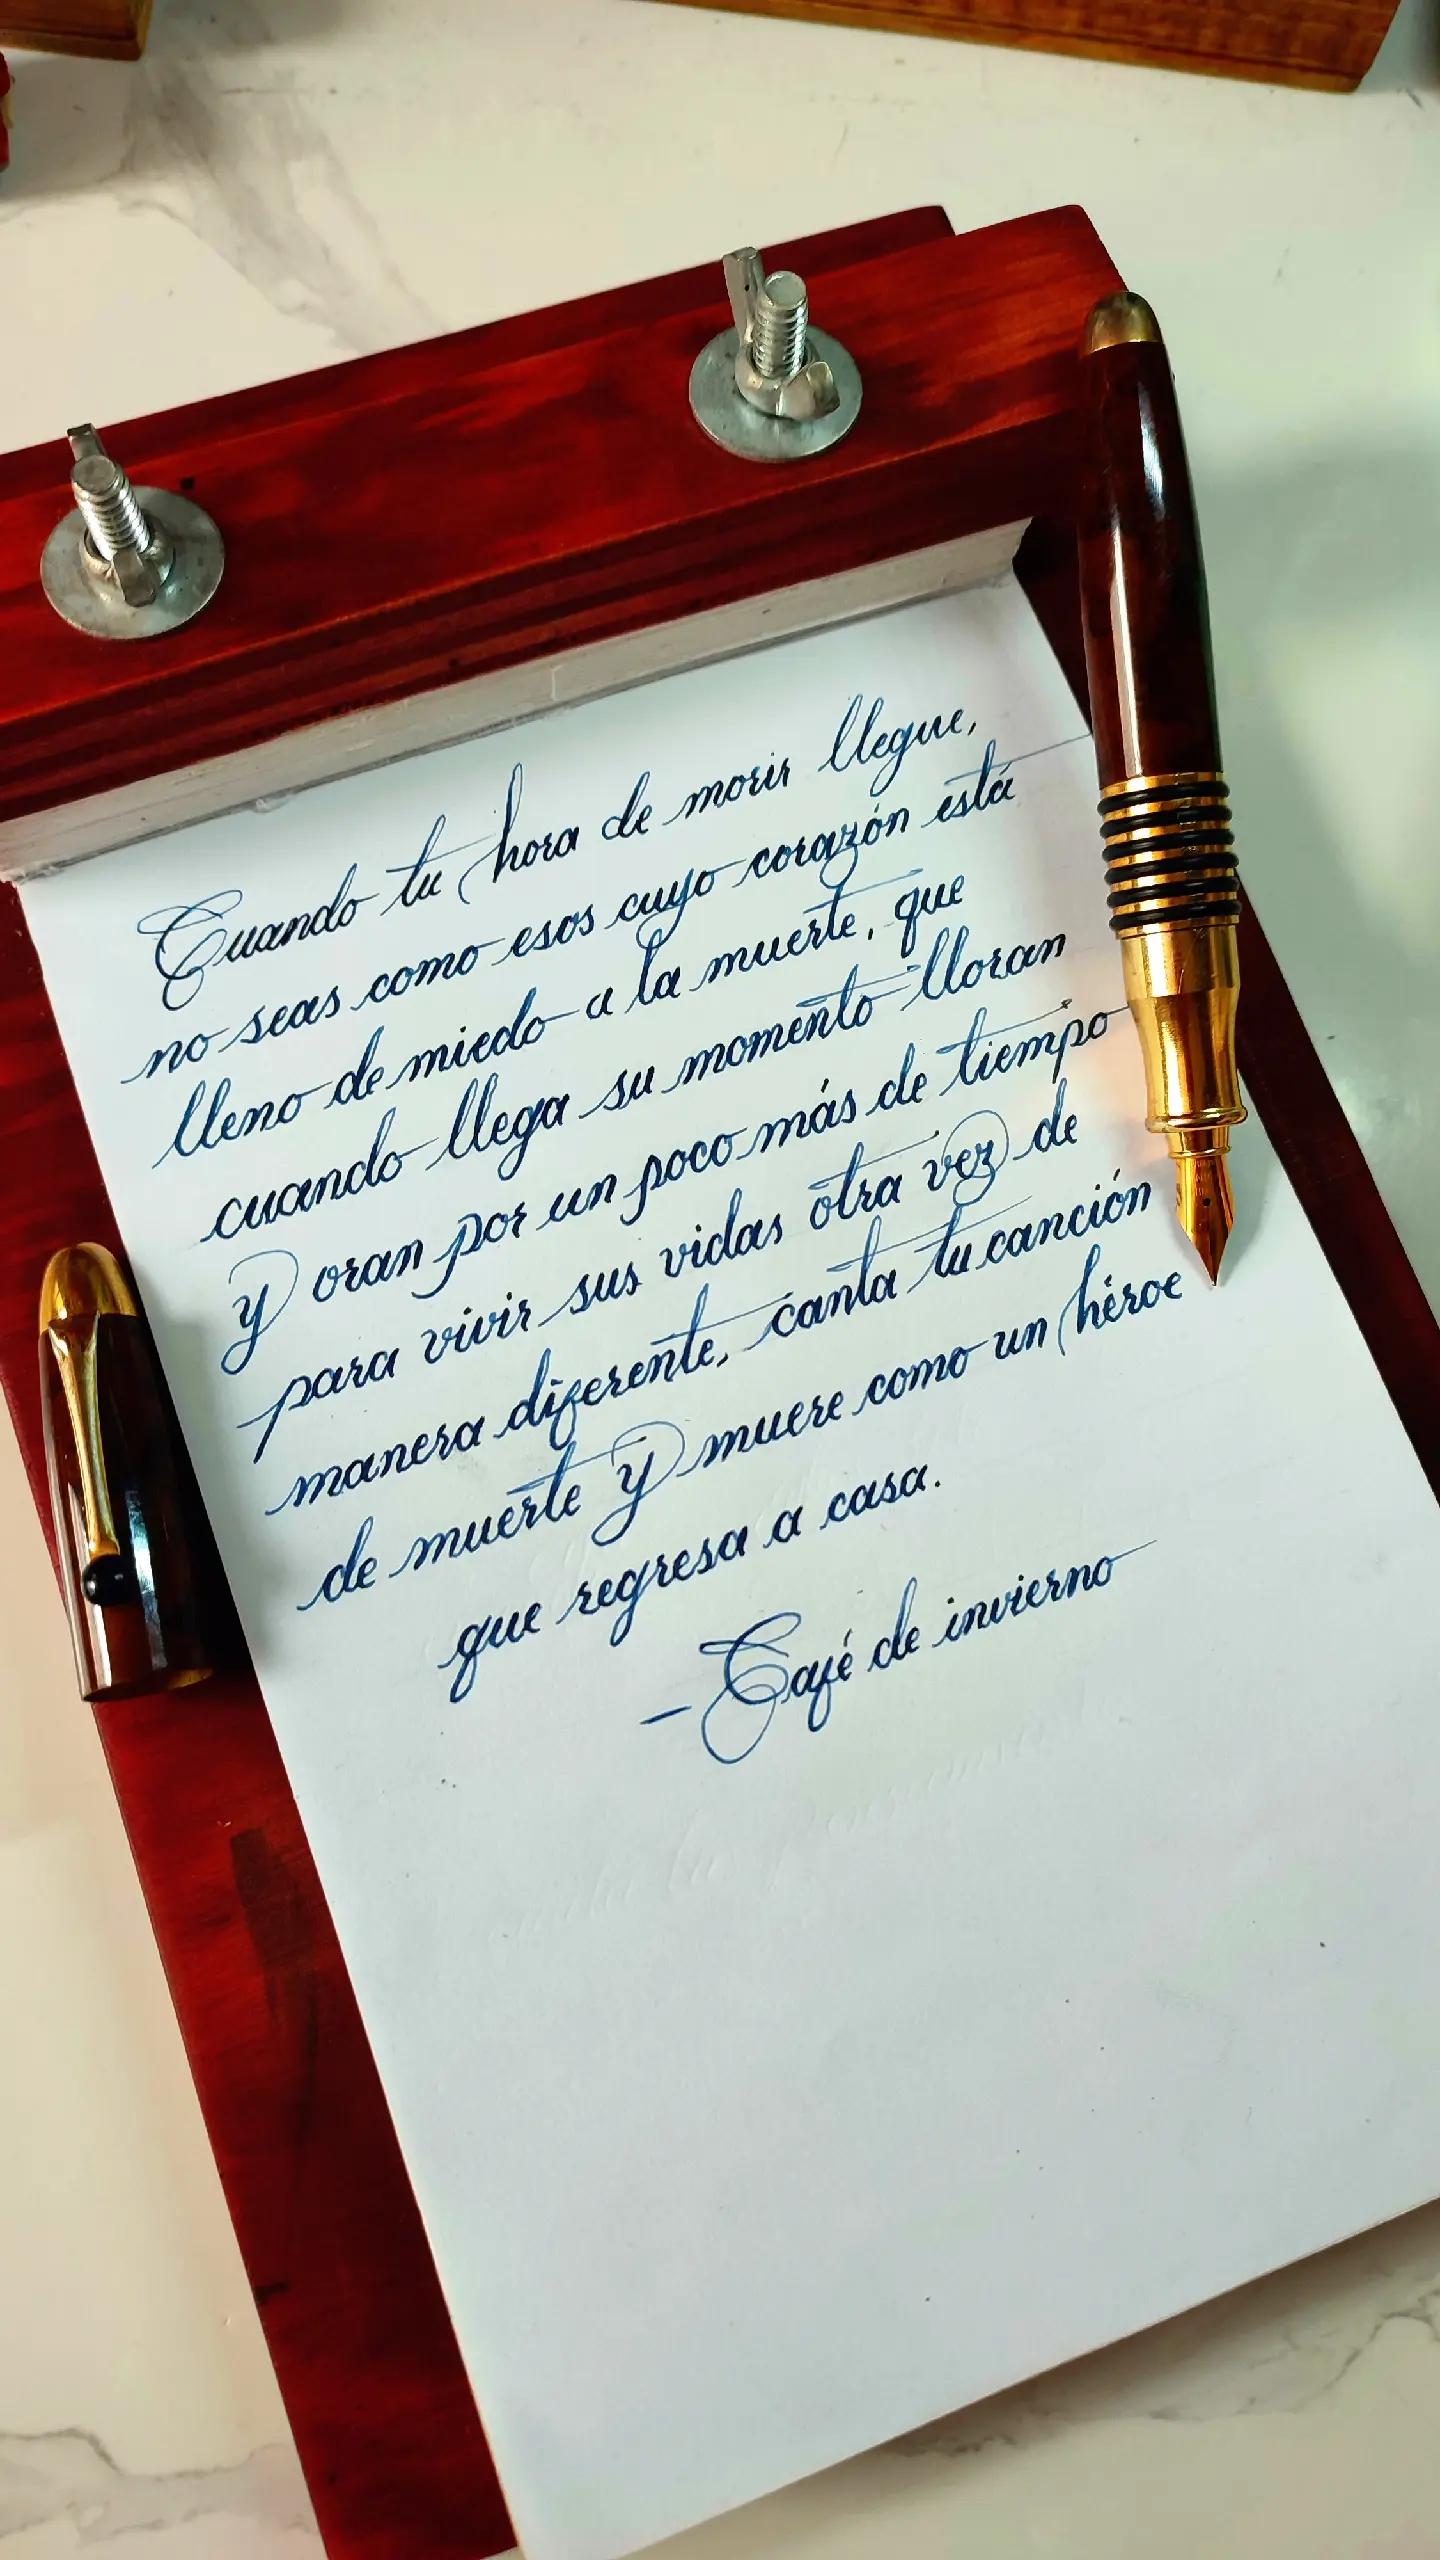 Cuando tu hora de morir llegue,
no seas como esos cuyo corazón está
lleno de miedo a la muerte, que
cuando llega su momento lloran
y oran por un poco más de tiempo
para vivir sus vidas otra vez de
manera diferente, canta tu canción
de muerte y muere como un héroe
que regresa a casa.
- Café de invierno